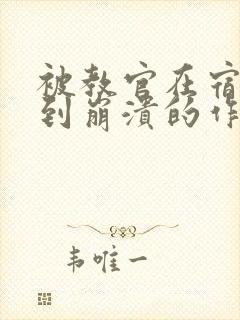 被教官在宿
到崩溃的作
韦唯一